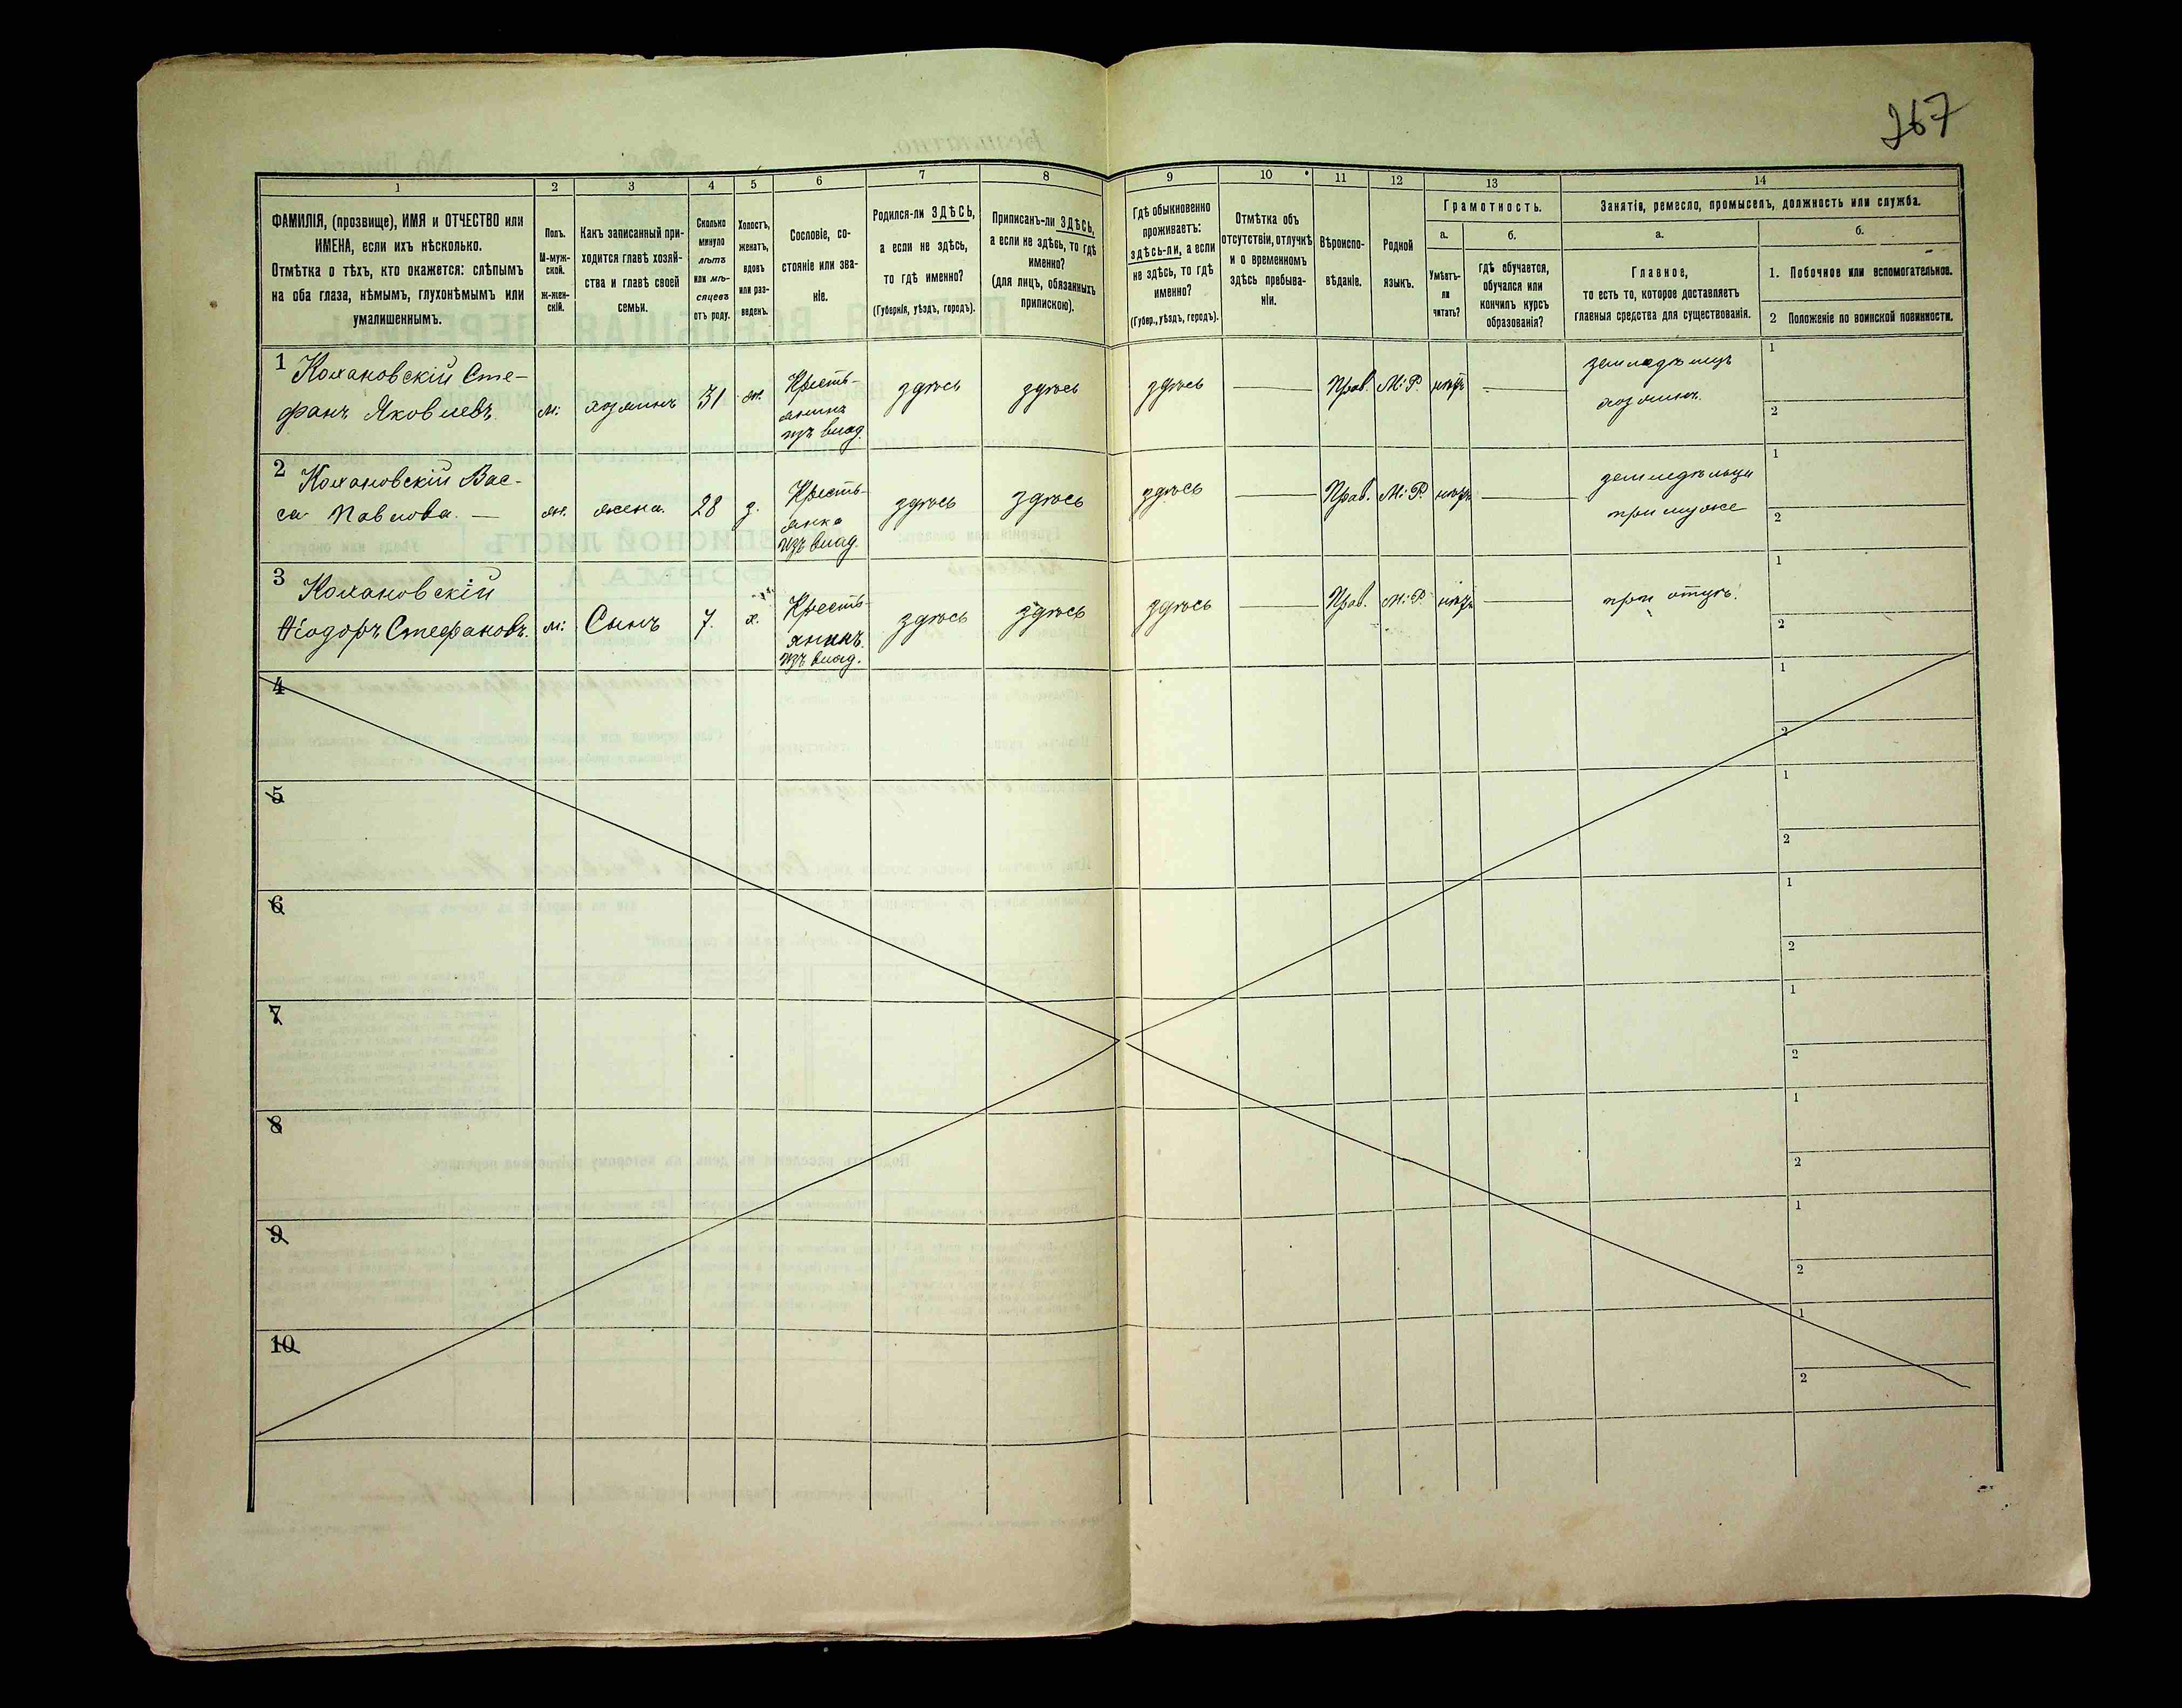 267
1
2
3
4
5
6
7
8
9
10
11
12
13
14
ФАМИЛІЯ, (прозвище), ИМЯ и ОТЧЕСТВО или
ИМЕНА, если ихъ нѣсколько.
Отмѣтка о тѣхъ, кто окажется: слѣпымъ
на оба глаза, нѣмымъ, глухонѣмымъ или
умалишеннымъ.
Полъ.
М-муж-
ской.
ж-жен-
скій.
Какъ записанный при-
ходится главѣ хозяй-
ства и главѣ своей
семьи.
Сколько
минуло
лѣтъ
или мѣ-
сяцевъ
отъ роду.
Холостъ,
женатъ,
вдовъ
или раз-
веденъ.
Сословіе, со-
стояніе или зва-
ніе.
Родился-ли ЗДѢСЬ,
а если не здѣсь,
то гдѣ именно?
(Губернія, уѣздъ, городъ).
Приписанъ-ли ЗДѢСЬ,
а если не здѣсь, то гдѣ
именно?
(для лицъ, обязанныхъ
припискою).
Гдѣ обыкновенно
проживаетъ:
здѣсь-ли, а если
не здѣсь, то гдѣ
именно?
(Губер., уѣздъ, городъ).
Отмѣтка объ
отсутствіи, отлучкѣ
и о временномъ
здѣсь пребыва-
ніи.
Вѣроиспо-
вѣданіе.
Родной
языкъ.
Грамотность.
а.
Умѣетъ-
ли
читать?
б.
гдѣ обучается,
обучался или
кончилъ курсъ
образованія?
Занятіе, ремесло, промыселъ, должность или служба.
а.
Главное,
то есть то, которое доставляетъ
главныя средства для существованія.
б.
1. Побочное или вспомогательное.
2 Положеніе по воинской повинности.
1 Комановскій Сте-
фанъ Яковлевъ.
м:
хозяинъ
31
ж.
Кресть-
янинъ
изъ влад.
здѣсь
здѣсь
здѣсь
Прав.
М:Р.
нѣтъ
земледѣлецъ
хозяинъ.
1
2
2 Комановскій Вас-
са Павлова. —
ж.
жена.
28
з.
Кресть-
янка
изъ влад.
здѣсь
здѣсь
здѣсь
Прав.
М:Р.
нѣтъ
при мужѣ
1
2
3 Комановскій
Ѳіодоръ Стефановъ.
м:
Сынъ
7.
х.
Кресть-
янинъ.
изъ влад.
здѣсь
здѣсь
здѣсь
Прав.
М:Р.
нѣтъ
при отцѣ.
1
2
4
1
2
5
1
2
6
1
2
7
1
2
8
1
2
9
1
2
10
1
2